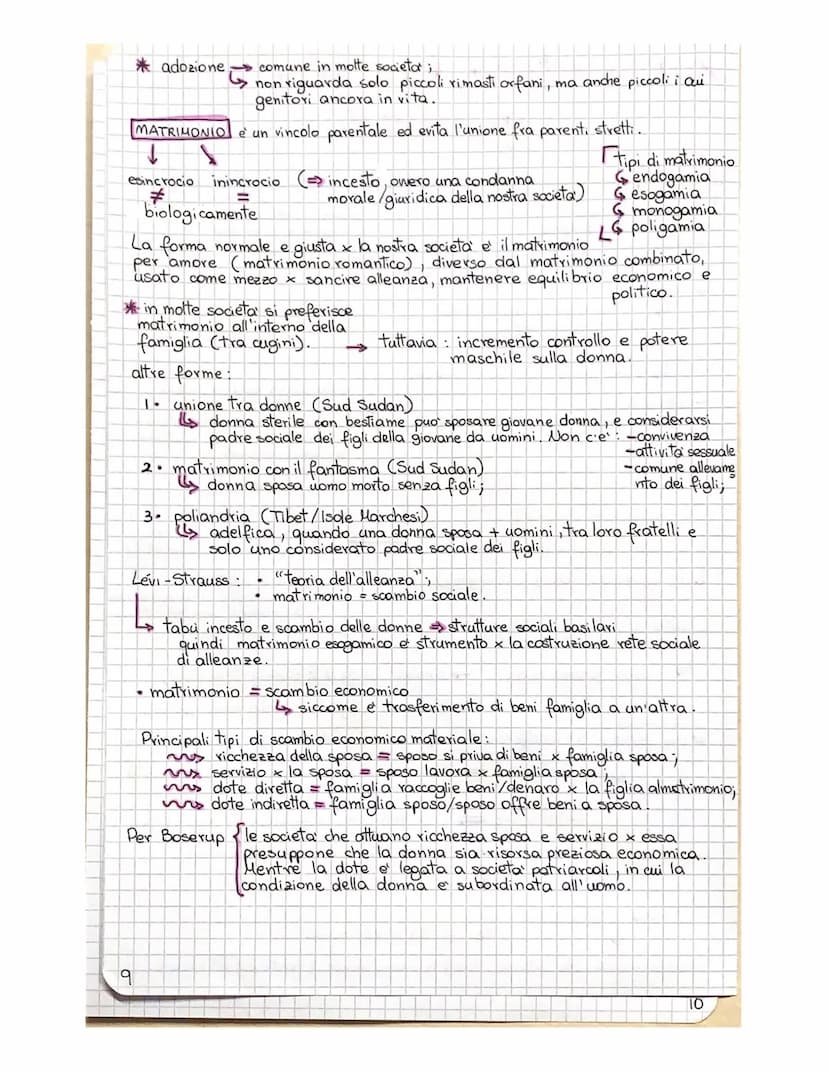 * adozione → comune in molte societa';
↳ non riguarda solo piccoli rimasti orfani, ma anche piccoli i cui
genitori ancora in vita.
MATRIMONIO e' un vincolo parentale ed evita l'unione fra parenti stretti.
esincrocio inincrocio (⇒ incesto, ovvero una condanna
≠ = morale/giuridica della nostra societa')
biologicamente
tipi di matrimonio
↳ endogamia
↳ esogamia
↳ monogamia
↳ poligamia
La forma normale e giusta x la nostra societa' e' il matrimonio
per amore (matrimonio romantico), diverso dal matrimonio combinato,
usato come mezzo x sancire alleanza, mantenere equilibrio economico e
politico.
* in molte societa' si preferisce
matrimonio all'interno della
famiglia (tra cugini). → tuttavia: incremento controllo e potere
maschile sulla donna.
altre forme:
1. unione tra donne (Sud Sudan)
↳ donna sterile con bestiame puo' sposare giovane donna, e considerarsi
padre sociale dei figli della giovane da uomini. Non c'e': -convivenza
-attivita' sessuale
-comune allevame
nto dei figli;
2. matrimonio con il fantasma (Sud Sudan)
↳ donna sposa uomo morto senza figli;
3. poliandria (Tibet/Isole Marchesi)
↳ adelfica, quando una donna sposa + uomini, tra loro fratelli e
solo uno considerato padre sociale dei figli.
Lévi-Strauss: • "teoria dell'alleanza";
• matrimonio = scambio sociale.
↳ tabù incesto e scambio delle donne ⇒ strutture sociali basilari
quindi matrimonio esogamico e' strumento x la costruzione rete sociale
di alleanze.
• matrimonio = scambio economico
↳ siccome e' trasferimento di beni famiglia a un'altra.
Principali tipi di scambio economico materiale:
ricchezza della sposa = sposo si priva di beni x famiglia sposa;
servizio x la sposa = sposo lavora x famiglia sposa;
dote diretta = famiglia raccoglie beni/denaro x la figlia al matrimonio;
dote indiretta = famiglia sposo/sposo offre beni a sposa.
Per Boserup { le societa' che attuano ricchezza sposa e servizio x essa
presuppone che la donna sia risorsa preziosa economica.
Mentre la dote e' legata a societa' patriarcali, in cui la
condizione della donna e' subordinata all'uomo.
9
10